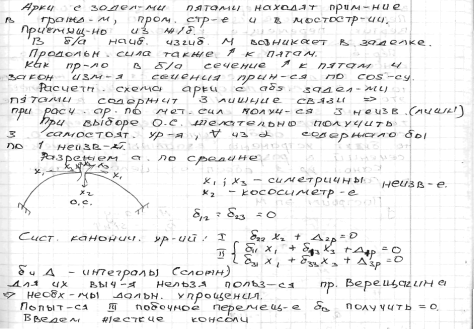 Арки с задел-ми пятами находят прим-ние
в гражд-м, пром. стр-е и в мостостр-ии.
Преимущ-но из ж/б.
В б/а наиб. изгиб М возникает в заделке.
Продольн. сила также ↑ к пятам.
Как пр-ло в б/а сечение ↑ к пятам и
закон изм-я сечения прин-ся по cos-су.
Расчетн. схема арки с абс. задел-ми
пятами содержит 3 лишние связи ⇒
при расч. ар. по мет. сил получ-ся 3 неизв. (лишн)
При выборе О.С. желательно получить
3 самостоят. ур-я, из 2 содержало бы
по 1 неизв-
Разрежем а. по средине
x₁ x₃ x₃ x₁
x₂
О.С.
x₁ ; x₃ - симетричны
x₂ - кососиметр-е
неизв-е.
δ₁₂ = δ₂₃ = 0
Сист. канонич. ур-ий: I δ₂₂ x₂ + Δ₂p = 0
II { δ₁₁ x₁ + δ₁₃ x₃ + Δ₁p = 0
δ₃₁ x₁ + δ₃₃ x₃ + Δ₃p = 0
δ и Δ - интегралы (сложн)
Для их выч-я нельзя польз-ся пр. Верещагина
⇒ необх-мы дальн. упрощения.
Попыт-ся III побочное перемещ-е δ₁₃ получить = 0.
Введем жесткие консоли